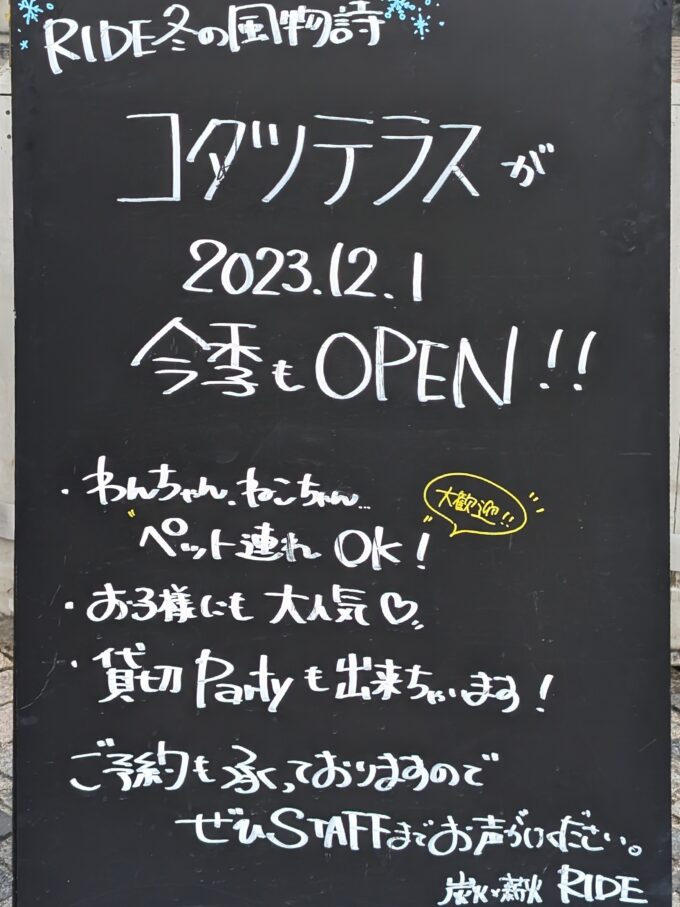 RIDE冬の風物詩
コタツテラスが
2023.12.1
今季もOPEN!!
・わんちゃん、ねこちゃん…
"ペット連れ OK!"
大歓迎!!
・お子様にも 大人気♡
・貸切 Partyも出来ちゃいます!
ご予約も承っておりますので
ぜひSTAFFまでお声がけください。
炭火×薪火 RIDE